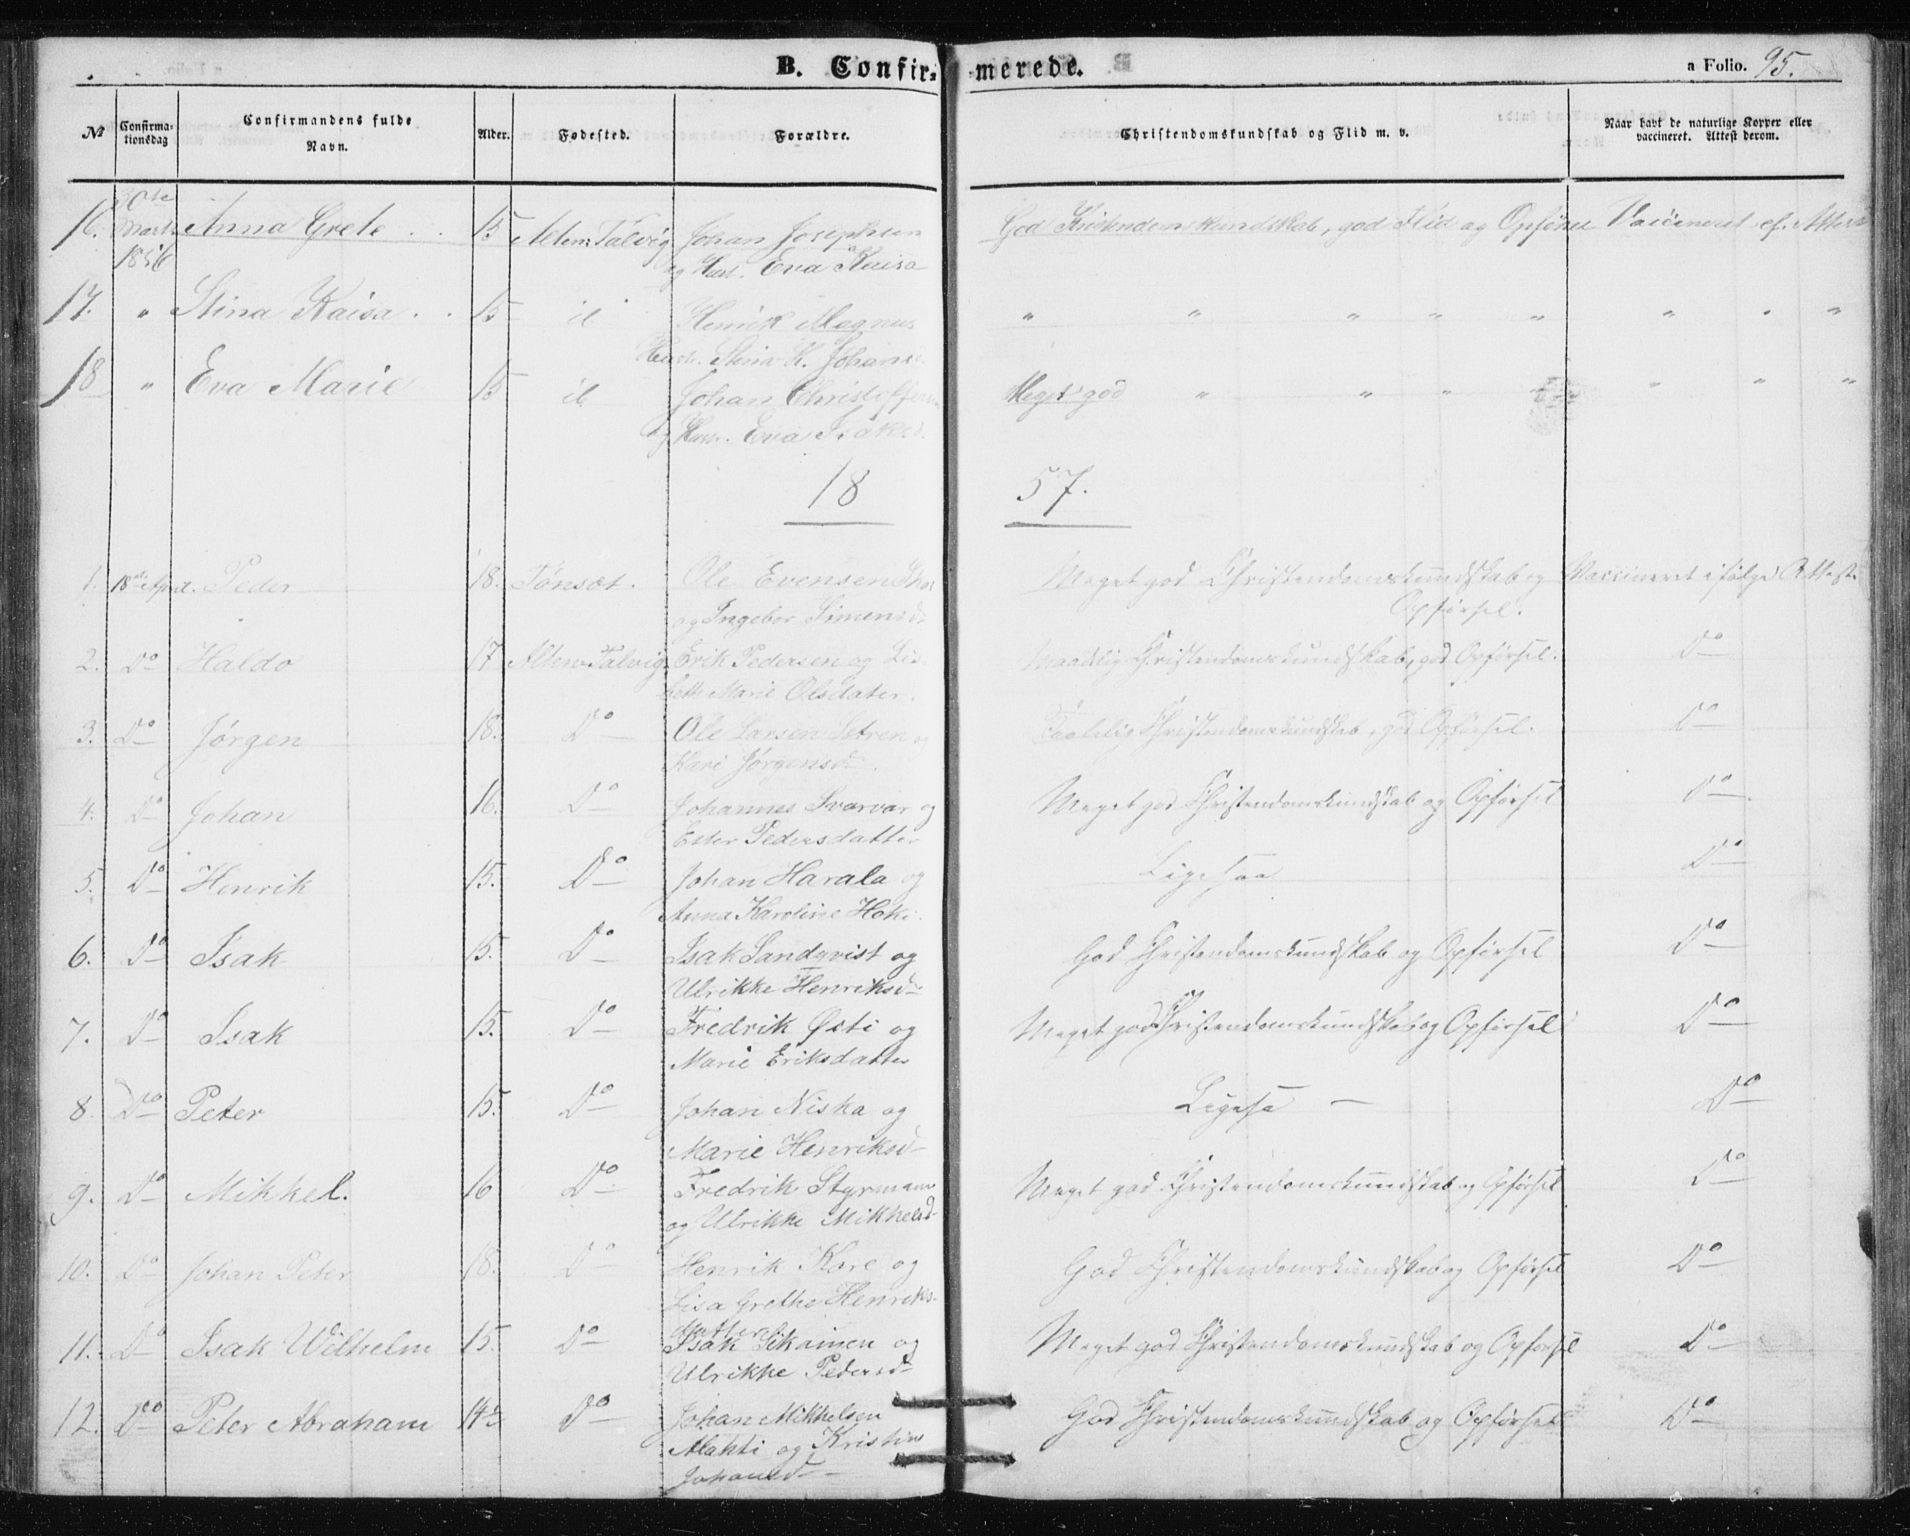 B. Confir- merede. a Folio. 95.
№ Confirma- tionsdag Confirmandens fulde Navn. Alder. Fødested. Forældre. Christendomskundskab og Flid m. v. Naar havt de naturlige Kopper eller vaccineret. Attest derom.
16. 30te Marts 1856 Anna Grete 15 Alten Talvig Johan Josephsen God Kristendomskundskab, god Flid og Opførsel Vaccineret ef. Attest
og Hust. Eva Kaisa
17. " Stina Kaisa 15 id Henrik Magnus " " " " " " " "
Hust. Stina K. Johans
18 " Eva Marie 15 id Johan Christoffersen Meget god " " " " " " "
og Hust. Eva Isaksd.
18 57.
1. 18de April. Peder 18. Tønset. Ole Evensen Meget god Christendomskundskab og Vaccineret ifølge Attest.
og Ingebor Simensd. Opførsel.
2. Do Haldo 17 Alten Talvig Erik Pedersen og Lis- Maadelig Christendomskundskab, god Opførsel. Do
beth Marie Olsdater.
3. Do Jørgen 18. Do Ole Larsen Setren og Taalelig Christendomskundskab, god Opførsel. Do
Kari Jørgensd.
4. Do Johan 16. Do Johannes Svarvar og Meget god Christendomskundskab og Opførsel Do
Ester Pedersdatter
5. Do Henrik 15. Do Johan Harala og Ligesaa Do
Anna Karoline Hoki.
6. Do Isak 15. Do Isak Sandqvist og God Christendomskundskab og Opførsel Do
Ulrikke Henriksd
7. Do Isak 15. Do Fredrik Østi og Meget god Christendomskundskab og Opførsel Do
Marie Eriksdatter
8. Do Peter 15. Do Johan Niska og Ligesa — Do
Marie Henriksd
9. Do Mikkel. 16 Do Fredrik Styrmann Meget god Christendomskundskab og Opførsel Do
og Ulrikke Mikkelsd
10. Do Johan Peter 18. Do Henrik Kare og God Christendomskundskab og Opførsel Do
Lisa Grethe Henriks-
datter
11. Do Isak Wilhelm 15. Do Isak Sikainen og Meget god Christendomskundskab og Opførsel Do
Ulrikke Pedersd
12. Do Peter Abraham 14½ Do Johan Mikkelsen God Christendomskundskab og Opførsel Do
Alahti og Kristine
Johansd